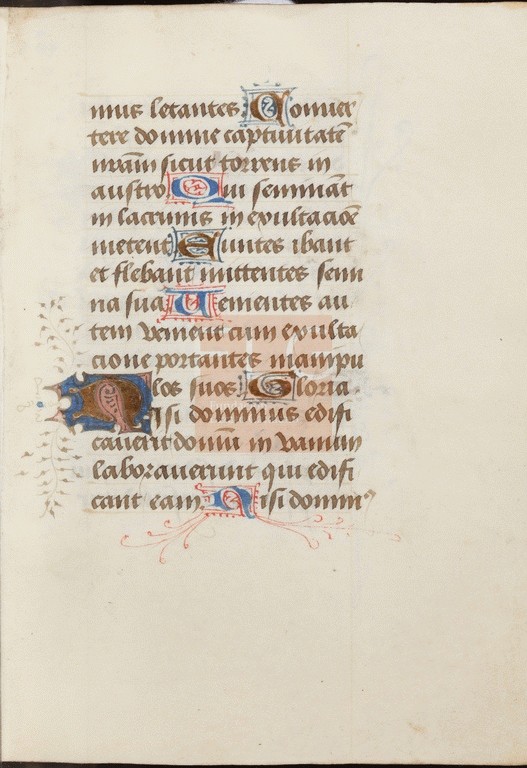 mus letantes Conuer
tere domine captiuitatē
nrām sicut torrens in
austro Qui semināt
in lacrimis in exultacioē
metent Euntes ibant
et flebant mittentes semi
na sua Uenientes au
tem venient cum exulta
cione portantes manipu
los suos Gloria
Nisi dominus edifi
cauerit domū in vanum
laborauerunt qui edifi
cant eam Nisi domin⁹